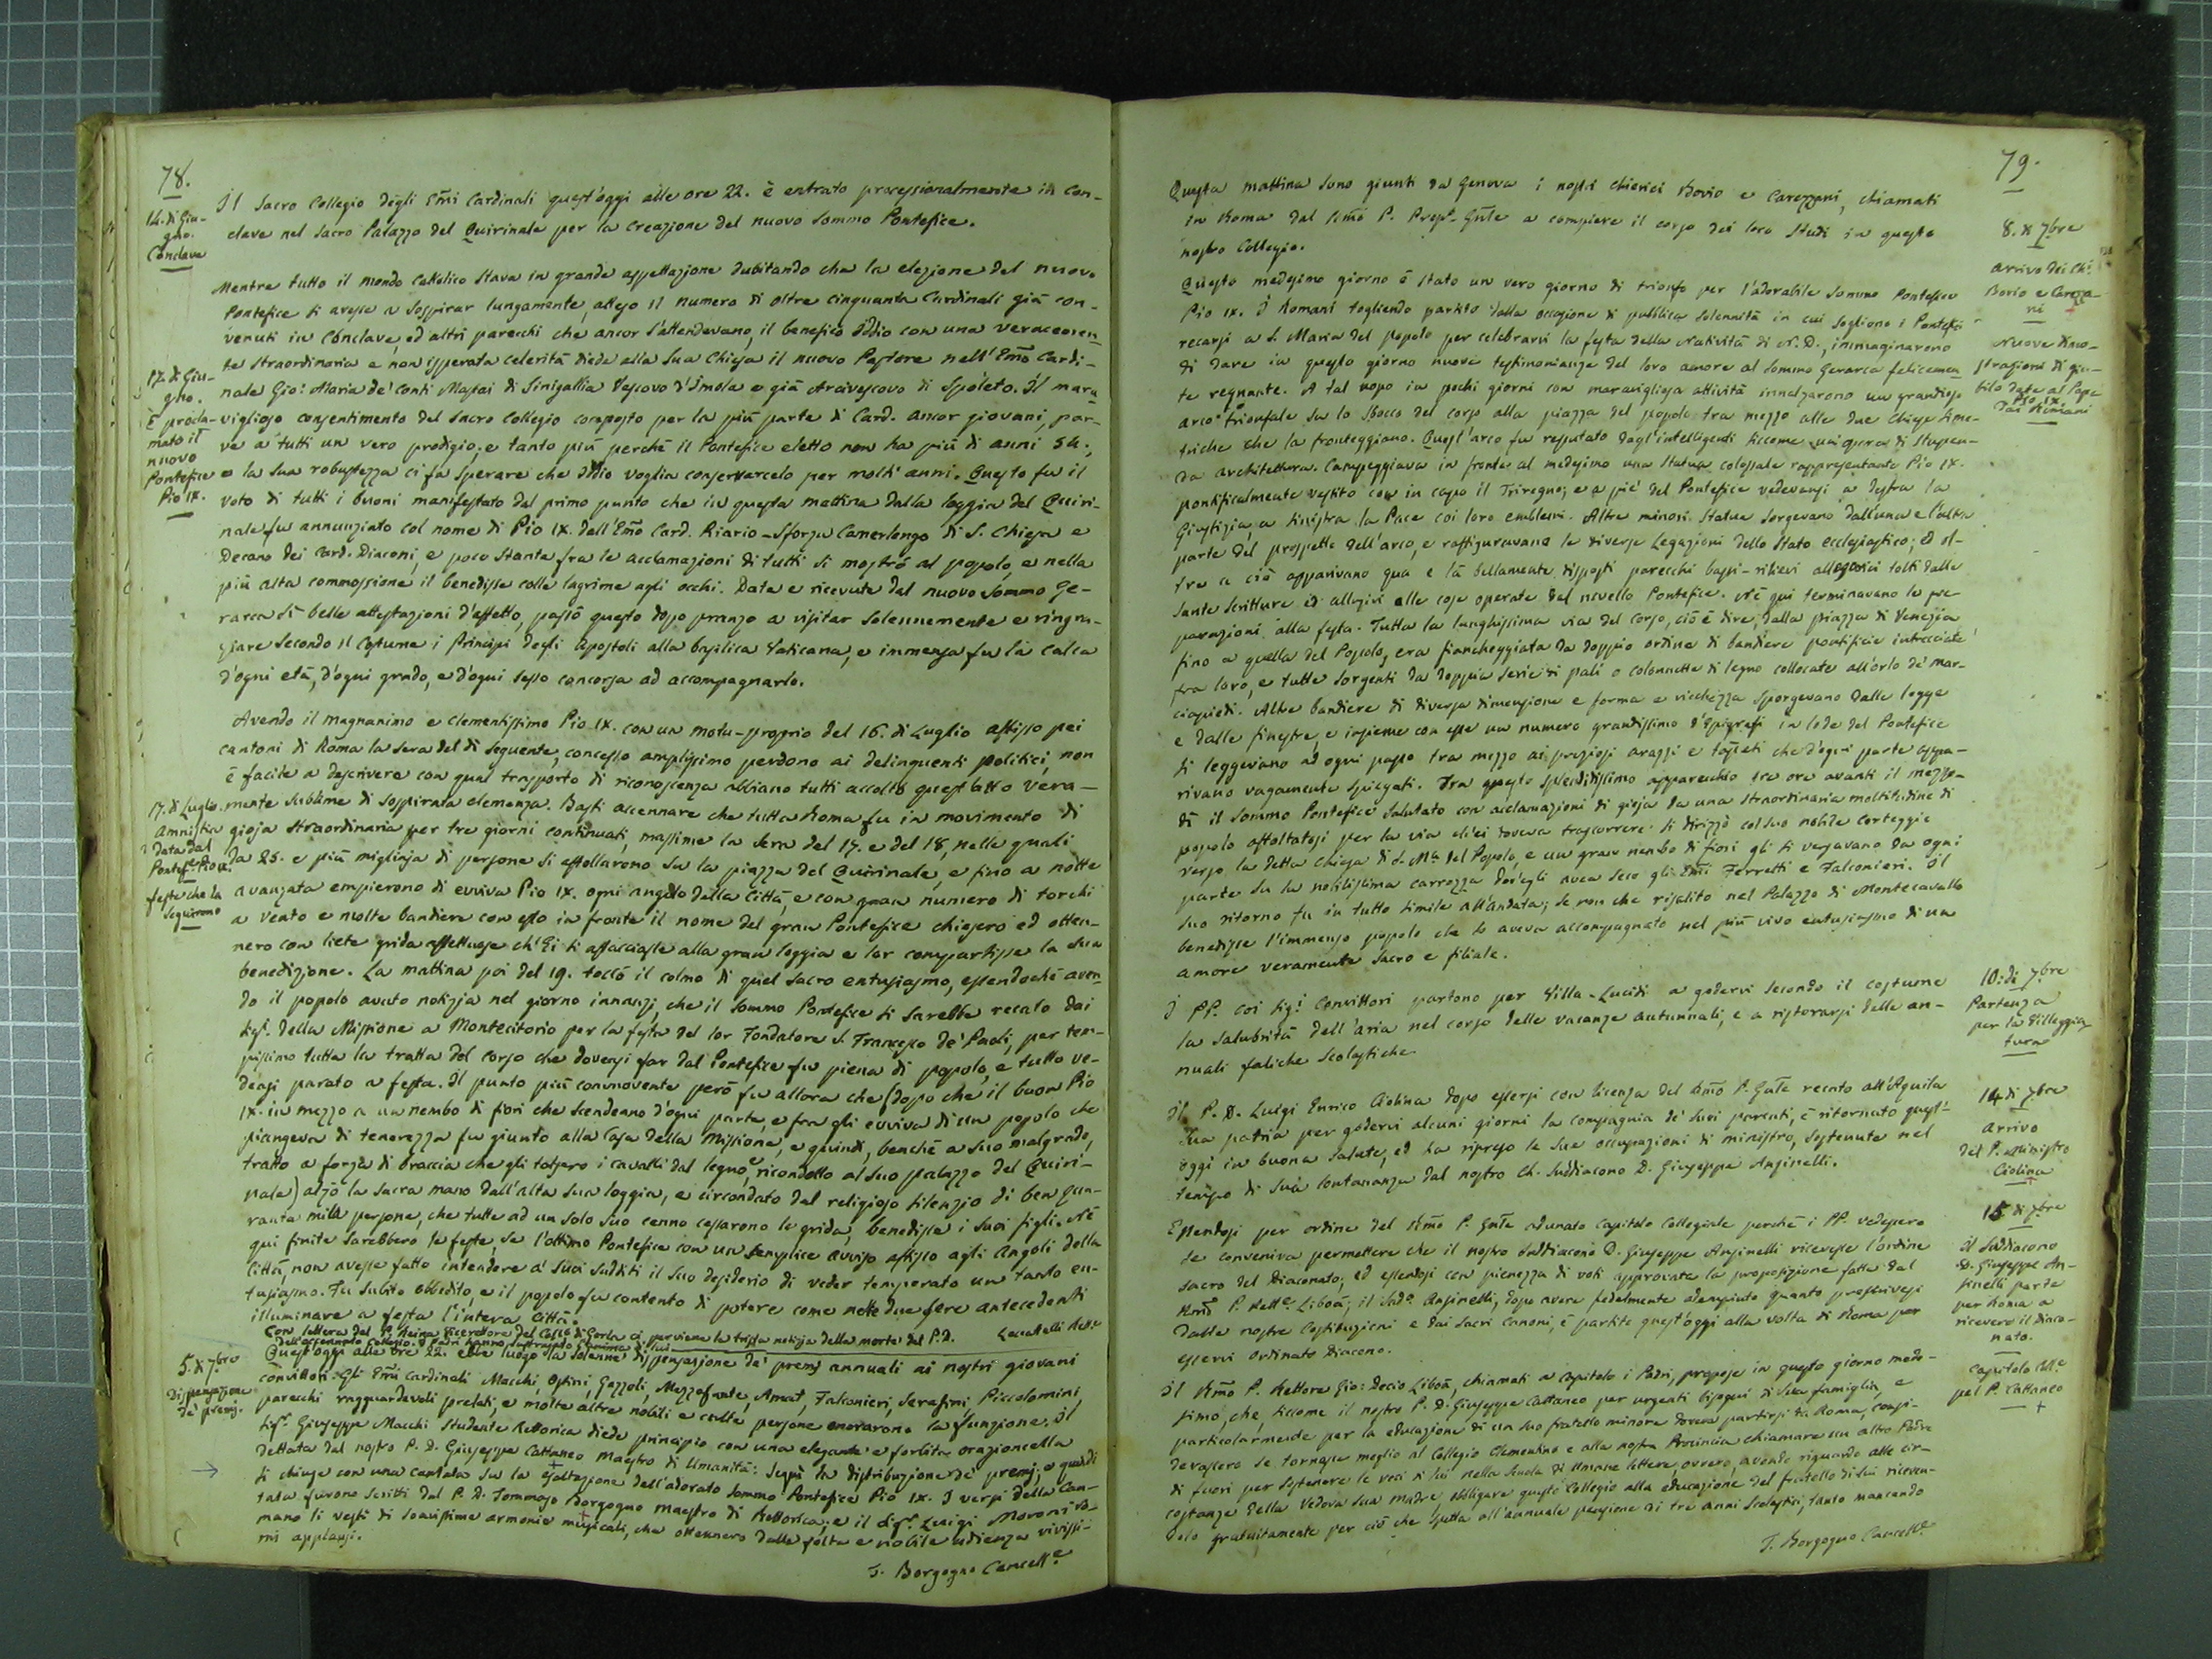 78.
14. di Giu-
gno.
Conclave
Il Sacro Collegio degli Emi Cardinali quest'oggi alle ore 22. è entrato processionalmente in Con-
clave nel Sacro Palazzo del Quirinale per la creazione del nuovo Sommo Pontefice.
Mentre tutto il mondo Cattolico stava in grande aspettazione dubitando che la elezione del nuovo
Pontefice si avesse a sospirar lungamente, atteso il numero di oltre cinquanta Cardinali già con-
venuti in Conclave, ed altri parecchi che ancor s'attendevano, il benefico Iddio con una veracemen-
te straordinaria e non isperata celerità diede alla Sua Chiesa il nuovo Pastore nell'Emo Cardi-
17. di Giu-
gno.
È procla-
mato il
nuovo
Pontefice
Pio IX.
nale Gio: Maria de' Conti Mastai di Sinigallia Vescovo d'Imola e già Arcivescovo di Spoleto. Il mara-
viglioso consentimento del Sacro Collegio composto per la più parte di Card. ancor giovani, par-
ve a tutti un vero prodigio; e tanto più perchè il Pontefice eletto non ha più di anni 54.,
e la sua robustezza ci fa sperare che Iddio voglia conservarcelo per molti anni. Questo fu il
voto di tutti i buoni manifestato dal primo punto che in questa mattina dalla loggia del Quiri-
nale fu annunziato col nome di Pio IX. dall'Emo Card. Riario-Sforza Camerlengo di S. Chiesa e
Decano dei Card. Diaconi, e poco stante fra le acclamazioni di tutti si mostrò al popolo, e nella
più alta commossione il benedisse colle lagrime agli occhi. Date e ricevute dal nuovo Sommo Ge-
rarca sì belle attestazioni d'affetto, passò questo dopo pranzo a visitar solennemente e ringra-
ziare secondo il costume i Principi degli Apostoli alla basilica Vaticana, e immensa fu la calca
d'ogni età, d'ogni grado, e d'ogni sesso concorsa ad accompagnarlo.
Avendo il magnanimo e clementissimo Pio IX. con un motu-proprio del 16. di Luglio affisso pei
cantoni di Roma la sera del dì seguente, concesso amplissimo perdono ai delinquenti politici, non
è facile a descrivere con qual trasporto di riconoscenza abbiano tutti accolto quest'atto vera-
17. di Luglio.
Amnistia
data dal
Pontefe Pio IX.
feste che la
seguirono
mente sublime di sospirata clemenza. Basti accennare che tutta Roma fu in movimento di
gioja straordinaria per tre giorni continuati, massime la sera del 17. e del 18, nelle quali
da 25. e più migliaja di persone si affollarono su la piazza del Quirinale, e fino a notte
avanzata empierono di evviva Pio IX. ogni angolo della Città, e con gran numero di torchi
a vento e molte bandiere con esso in fronte il nome del gran Pontefice chiesero ed otten-
nero con liete grida affettuose ch'Ei si affacciasse alla gran loggia e lor compartisse la sua
benedizione. La mattina poi del 19. toccò il colmo di quel sacro entusiasmo, essendochè aven-
do il popolo avuto notizia nel giorno innanzi, che il Sommo Pontefice si sarebbe recato dai
Sigi. della Missione a Montecitorio per la festa del lor Fondatore S. Francesco de' Paoli, per tem-
pissimo tutta la tratta del corso che doveasi far dal Pontefice fu piena di popolo, e tutto ve-
deasi parato a festa. Il punto più commovente però fu allora che (dopo che il buon Pio
IX. in mezzo a un nembo di fiori che scendeano d'ogni parte, e fra gli evviva di un popolo che
piangeva di tenerezza fu giunto alla Casa della Missione, e quindi, benchè a suo malgrado,
tratto a forza di braccia che gli tolsero i cavalli dal legno, ricondotto al suo palazzo del Quiri-
nale) alzò la sacra mano dall'alta sua loggia, e circondato dal religioso silenzio di ben qua-
ranta mila persone, che tutte ad un solo suo cenno cessarono le grida, benedisse i suoi figli. Nè
qui finite sarebbero le feste, se l'ottimo Pontefice con un semplice avviso affisso agli angoli della
Città, non avesse fatto intendere a' suoi sudditi il suo desiderio di veder temperato un tanto en-
tusiasmo. Fu subito obbedito, e il popolo fu contento di potere come nelle due sere antecedenti
illuminare a festa l'intera Città.
Con lettera del P. Reina Vicerettore del Collo di Gorla ci perviene la trista notizia della morte del P.D. Leccatelli Rettre
dell'accennato Collegio. I Padri hanno suffragato l'anima di lui.
5. di 7bre
Dispensazione
de' premj.
Quest'oggi alle ore 22. ebbe luogo la solenne dispensazione de' premj annuali ai nostri giovani
convittori. Gli Emi Cardinali Macchi, Ostini, Gazzoli, Mezzofante, Amat, Falconieri, Serafini, Piccolomini,
parecchi ragguardevoli prelati, e molte altre nobili e culte persone onorarono la funzione. Il
Sigr. Giuseppe Macchi Studente Rettorica diede principio con una elegante e forbita orazioncella
dettata dal nostro P. D. Giuseppe Cattaneo Maestro di Umanità: Seguì la distribuzione de' premj, e quindi
si chiuse con una cantata su la esaltazione dell'adorato Sommo Pontefice Pio IX. I versi della Can-
tata furono scritti dal P. D. Tommaso Borgogno Maestro di Rettorica; e il Sigr. Luigi Moroni Ro-
mano li vestì di soavissime armonie musicali, che ottennero dalla folta e nobile udienza vivissi-
mi applausi.
T. Borgogno Cancelle
79.
8. di 7bre
Arrivo dei Chi.
Bovio e Carozza-
ni
Questa mattina sono giunti da Genova i nostri chierici Bovio e Carozzani, chiamati
in Roma dal Rmo P. Prepo. Gnle a compiere il corso dei loro studi in questo
nostro Collegio.
Nuove dimo-
strazioni di giu-
bilo date al Papa
Pio IX.
dai Romani
Questo medesimo giorno è stato un vero giorno di trionfo per l'adorabile Sommo Pontefice
Pio IX. I Romani togliendo partito dalla occasione di pubblica solennità in cui sogliono i Pontefici
recarsi a S. Maria del popolo per celebrarvi la festa della Natività di N. D., immaginarono
di dare in questo giorno nuove testimonianze del loro amore al Sommo Gerarca felicemen-
te regnante. A tal uopo in pochi giorni con maravigliosa attività innalzarono un grandioso
arco trionfale su lo sbocco del corso alla piazza del popolo tra mezzo alle due Chiese sime-
triche che la fronteggiano. Quest'arco fu reputato dagl'intelligenti siccome un'opera di stupen-
da architettura. Campeggiava in fronte al medesimo una statua colossale rappresentante Pio IX.
pontificalmente vestito con in capo il Triregno; e a piè del Pontefice vedevansi a destra la
Giustizia, a sinistra la Pace coi loro emblemi. Altre minori statue sorgevano dall'una e l'altra
parte del prospetto dell'arco, e raffiguravano le diverse Legazioni dello Stato ecclesiastico; ed ol-
tre a ciò apparivano qua e là bellamente disposti parecchi bassi-rilievi allegorici tolti dalle
sante Scritture ed allusivi alle cose operate dal novello Pontefice. Nè qui terminavano le pre-
parazioni alla festa. Tutta la lunghissima via del corso, ciò è dire, dalla piazza di Venezia
fino a quella del Popolo, era fiancheggiata da doppio ordine di bandiere pontificie intrecciate
fra loro, e tutte sorgenti da doppia serie di pali o colonnette di legno collocate all'orlo de' mar-
ciapiedi. Altre bandiere di diversa dimensione e forma e ricchezza sporgevano dalle logge
e dalle finestre, e insieme con esse un numero grandissimo d'epigrafi in lode del Pontefice
si leggevano ad ogni passo tra mezzo ai preziosi arazzi e tappeti che d'ogni parte appa-
rivano vagamente spiegati. Tra questo splendidissimo apparecchio tre ore avanti il mezzo-
dì il Sommo Pontefice salutato con acclamazioni di gioja da una straordinaria moltitudine di
popolo affoltatosi per la via ch'ei doveva trascorrere si dirizzò col suo nobile corteggio
verso la detta chiesa di S. Ma. del Popolo, e un gran nembo di fiori gli si versavano da ogni
parte su la nobilissima carrozza dov'egli avea seco gli Emi Ferretti e Falconieri. Il
suo ritorno fu in tutto simile all'andata; se non che risalito nel Palazzo di Montecavallo
benedisse l'immenso popolo che lo aveva accompagnato nel più vivo entusiasmo di un
amore veramente sacro e filiale.
10: di 7bre
Partenza
per la Villeggia-
tura
I PP. coi Sigi Convittori partono per Villa-Lucidi a godervi secondo il costume
la salubrità dell'aria nel corso delle vacanze autunnali, e a ristorarsi delle an-
nuali fatiche scolastiche.
14 di 7bre
Arrivo
del P. Ministro
Ciolina
Il P. D. Luigi Enrico Ciolina dopo essersi con licenza del Rmo P. Gnle recato all'Aquila
sua patria per godervi alcuni giorni la compagnia de' suoi parenti, è ritornato quest'-
oggi in buona salute, ed ha ripreso le sue occupazioni di ministro, sostenute nel
tempo di sua lontananza dal nostro Ch. Suddiacono D. Giuseppe Ansinelli.
15 di 7bre
il Suddiacono
D. Giuseppe An-
sinelli parte
per Roma a
ricevere il diaco-
nato.
Essendosi per ordine del Rmo P. Gnle adunato Capitolo Collegiale perchè i PP. vedessero
se conveniva permettere che il nostro Suddiacono D. Giuseppe Ansinelli ricevesse l'ordine
sacro del Diaconato; ed essendosi con pienezza di voti approvata la proposizione fatta dal
Rmo P. Rette Liboà; il Sudo. Ansinelli, dopo avere fedelmente adempiuto quanto prescrivesi
dalle nostre Costituzioni e dai Sacri Canoni, è partito quest'oggi alla volta di Roma per
esservi ordinato Diacono.
Capitolo Colle
pel P. Cattaneo
Il Rmo P. Rettore Gio: Decio Liboà, chiamati a Capitolo i Padri, propose in questo giorno mede-
simo, che, siccome il nostro P. D. Giuseppe Cattaneo per urgenti bisogni di sua famiglia, e
particolarmente per la educazione di un suo fratello minore doveva partirsi da Roma, consi-
derassero se tornasse meglio al Collegio Clementino e alla nostra Provincia chiamare un altro Padre
di fuori per sostenere le veci di lui nella Scuola di Umane lettere, ovvero, avendo riguardo alle cir-
costanze della Vedova sua madre, obbligare questo Collegio alla educazione del fratello di lui riceven-
dolo gratuitamente per ciò che spetta all'annuale pensione di tre anni scolastici, tanto mancando
T. Borgogno Cancelle